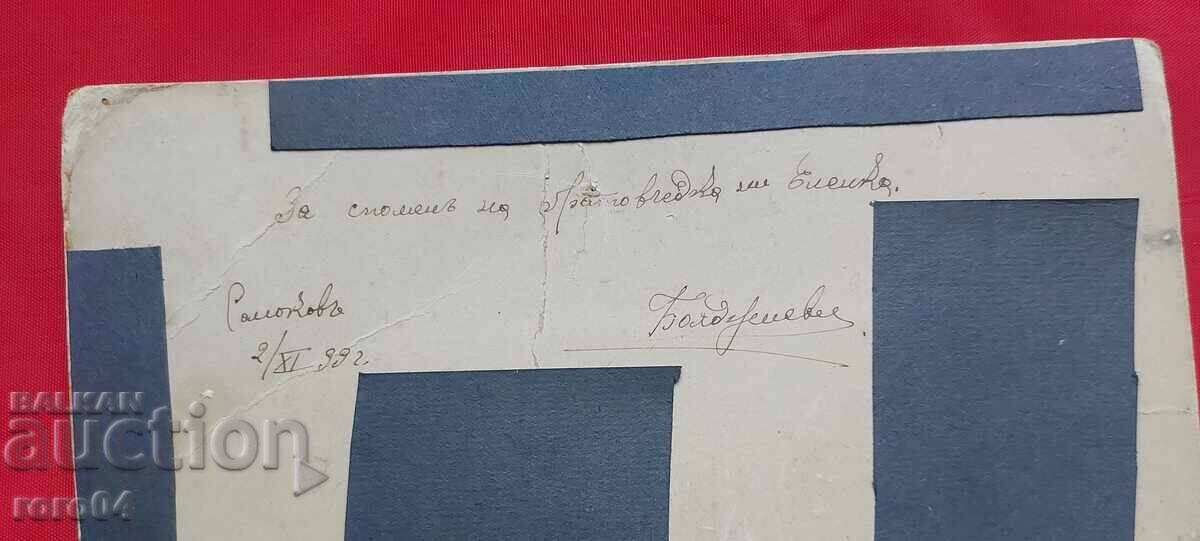 За споменъ на братовчедка ни Еленка.
Самоковъ
2/XI 99 г.
Бояджиеви
BALKAN
auction
roro04